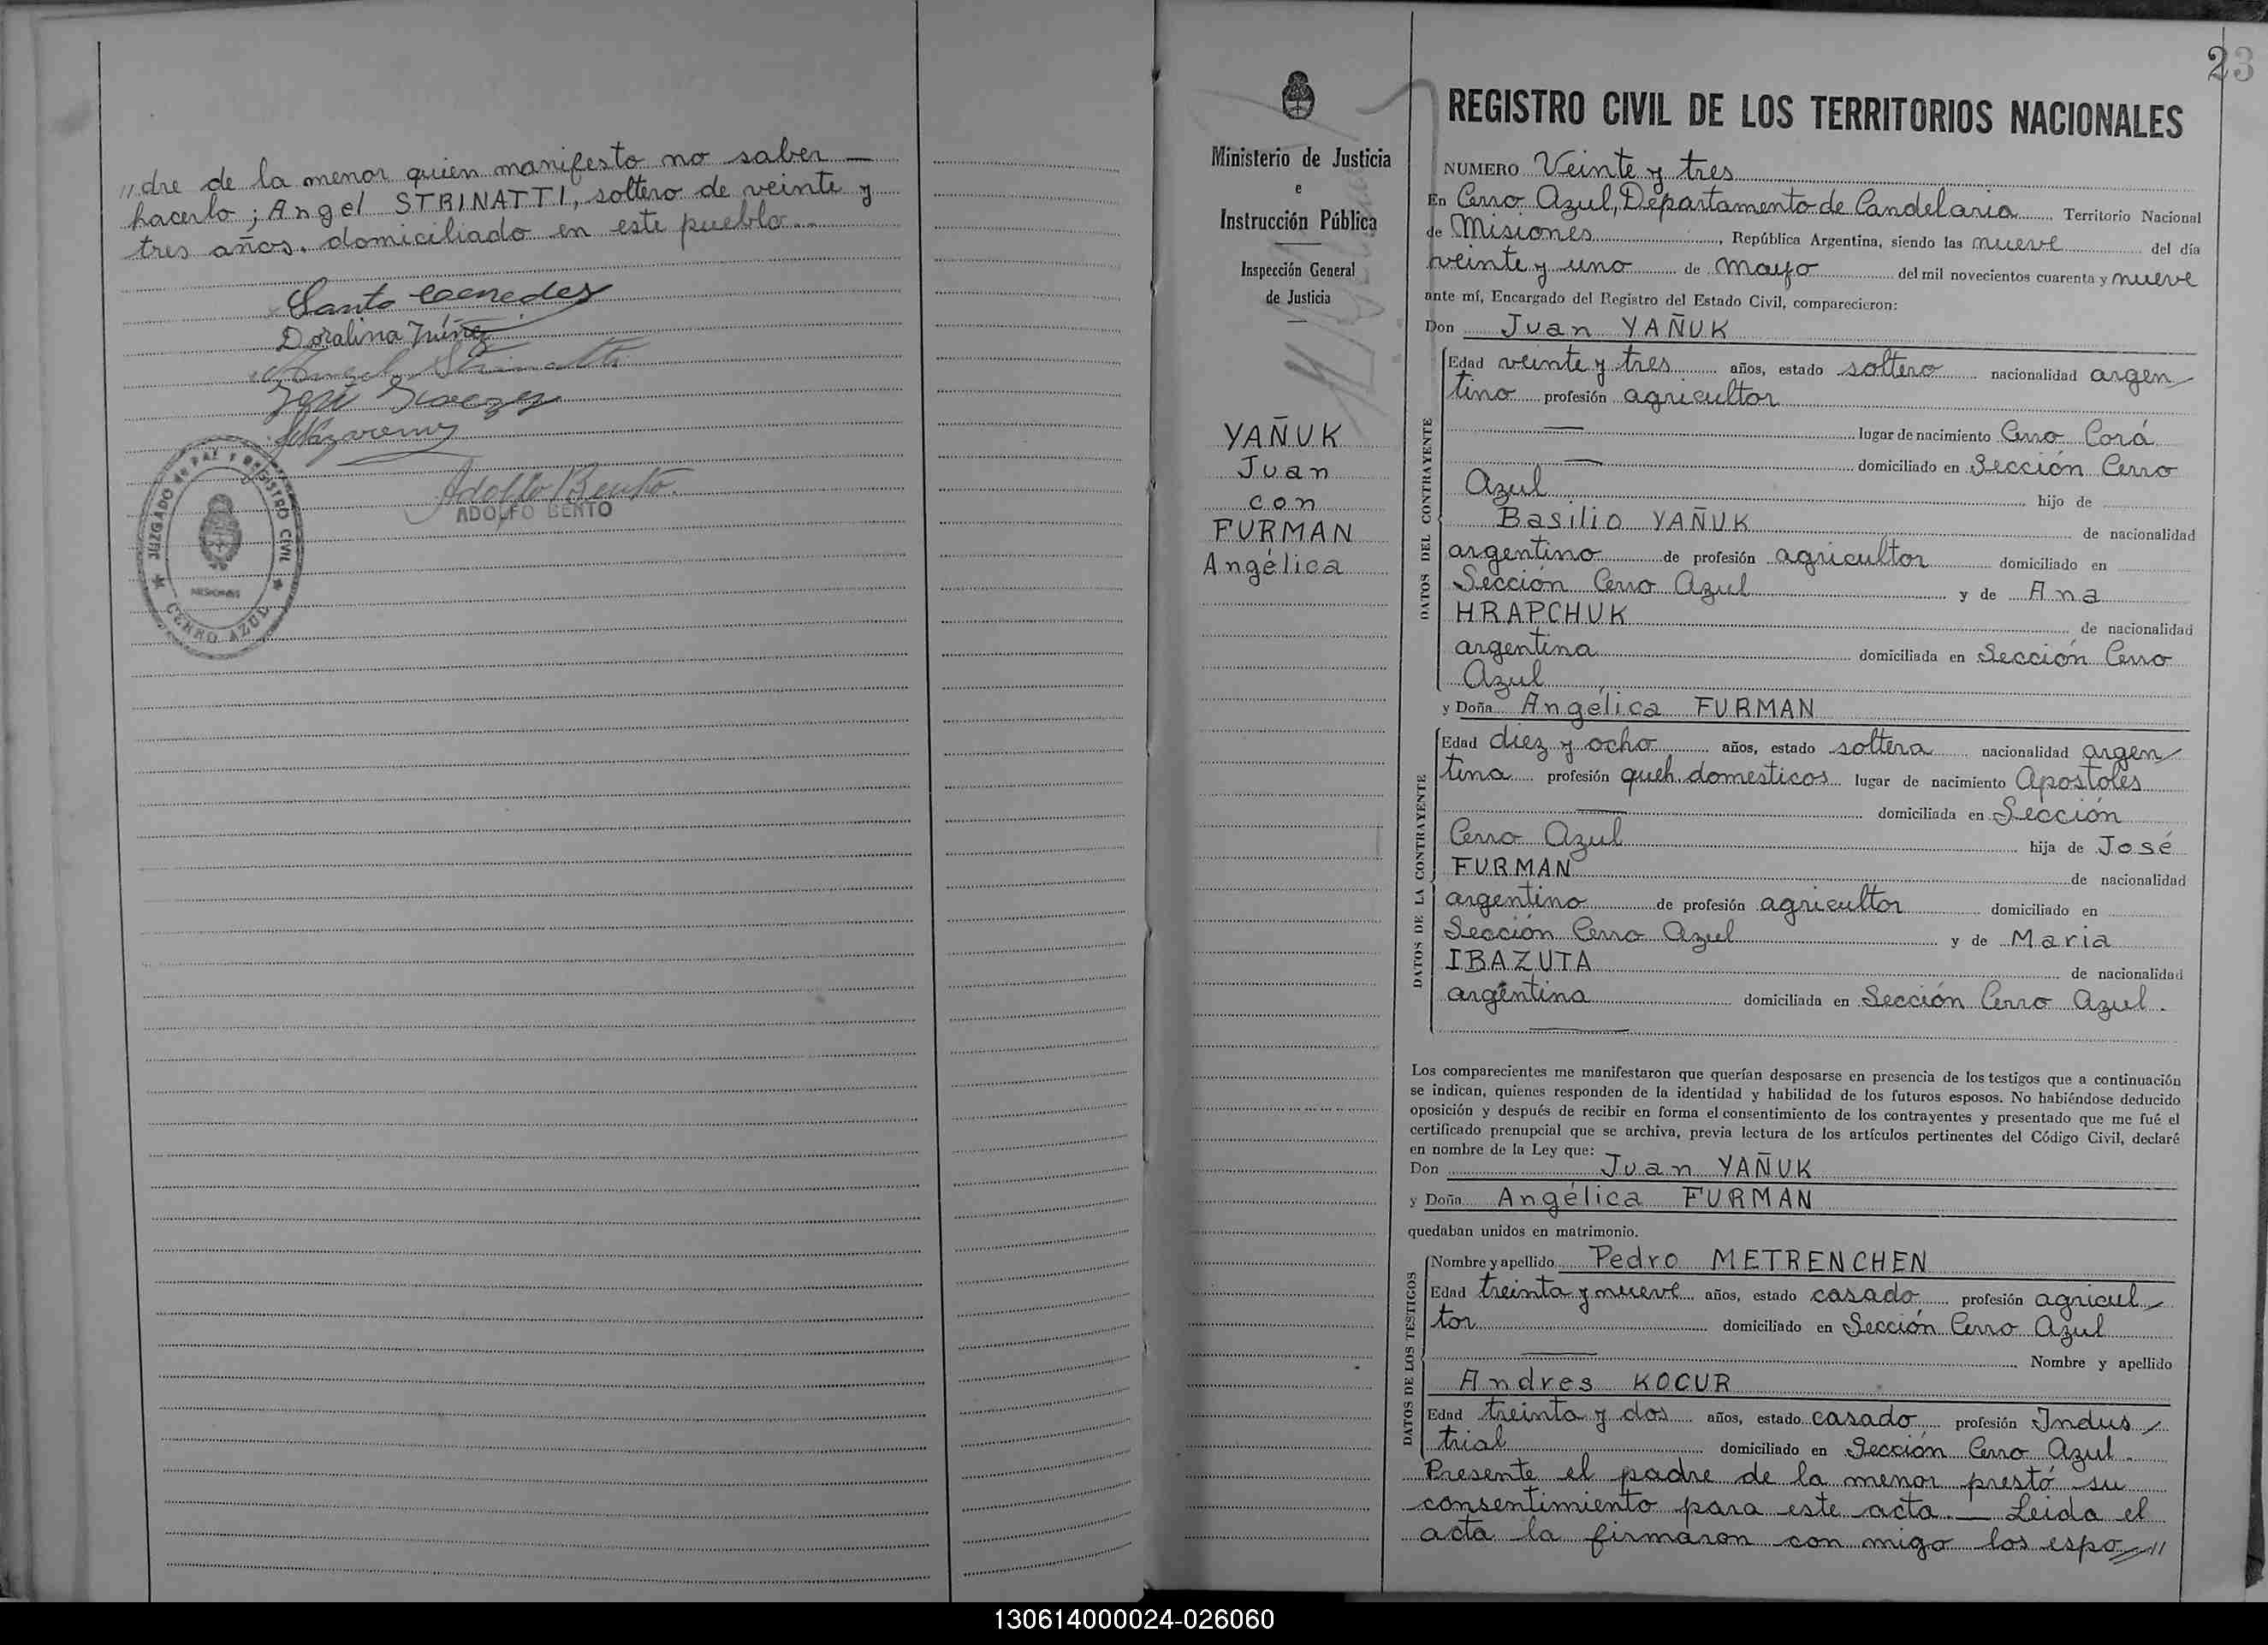 //dre de la menor quien manifesto no saber —
hacerlo; Angel STRINATTI, soltero de veinte y
tres años, domiciliado en este pueblo.-
Santo
Doralina Núñez
Angel Strinatti
José
Adolfo Bento.
ADOLFO BENTO
JUZGADO de PAZ Y REGISTRO CIVIL
MISIONES
CERRO AZUL
23
Ministerio de Justicia
e
Instrucción Pública
Inspección General
de Justicia
YAÑUK
Juan
con
FURMAN
Angélica
REGISTRO CIVIL DE LOS TERRITORIOS NACIONALES
NUMERO Veinte y tres
En Cerro Azul, Departamento de Candelaria Territorio Nacional
de Misiones, República Argentina, siendo las nueve del día
veinte y uno de mayo del mil novecientos cuarenta y nueve
ante mí, Encargado del Registro del Estado Civil, comparecieron:
Don Juan YAÑUK
DATOS DEL CONTRAYENTE
Edad veinte y tres años, estado soltero nacionalidad argen
tino profesión agricultor
lugar de nacimiento Cerro Corá
domiciliado en Sección Cerro
Azul hijo de
Basilio YAÑUK de nacionalidad
argentino de profesión agricultor domiciliado en
Sección Cerro Azul y de Ana
HRAPCHUK de nacionalidad
argentina domiciliada en Sección Cerro
Azul
y Doña Angélica FURMAN
DATOS DE LA CONTRAYENTE
Edad diez y ocho años, estado soltera nacionalidad argen
tina profesión queh. domesticos lugar de nacimiento Apostoles
domiciliada en Sección
Cerro Azul hija de José
FURMAN de nacionalidad
argentino de profesión agricultor domiciliado en
Sección Cerro Azul y de Maria
IBAZUTA de nacionalidad
argentina domiciliada en Sección Cerro Azul.
Los comparecientes me manifestaron que querían desposarse en presencia de los testigos que a continuación
se indican, quienes responden de la identidad y habilidad de los futuros esposos. No habiéndose deducido
oposición y después de recibir en forma el consentimiento de los contrayentes y presentado que me fué el
certificado prenupcial que se archiva, previa lectura de los artículos pertinentes del Código Civil, declaré
en nombre de la Ley que:
Don Juan YAÑUK
y Doña Angélica FURMAN
quedaban unidos en matrimonio.
DATOS DE LOS TESTIGOS
Nombre y apellido Pedro METRENCHEN
Edad treinta y nueve años, estado casado, profesión agricul
tor domiciliado en Sección Cerro Azul
Nombre y apellido
Andres KOCUR
Edad treinta y dos años, estado casado profesión Indus
trial domiciliado en Sección Cerro Azul.
Presente el padre de la menor prestó su
consentimiento para este acta.— Leida el
acta la firmaron con migo los espo //
130614000024-026060